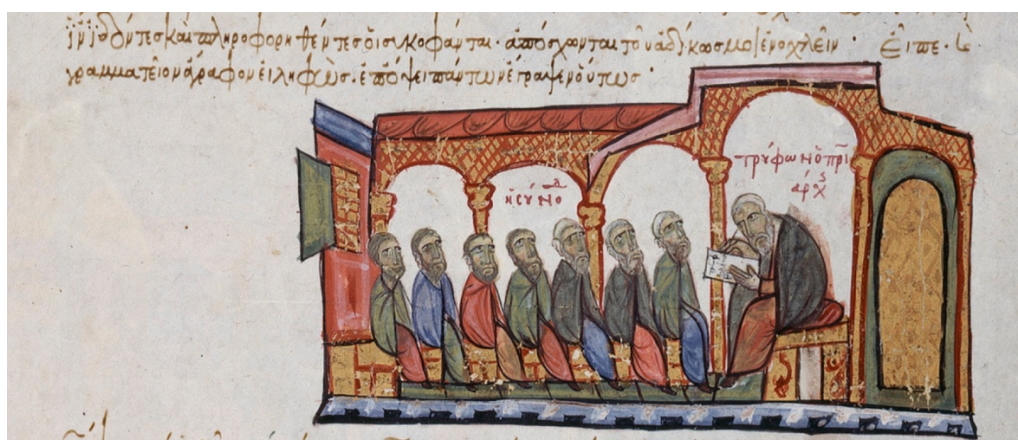 ἵν ἰδόντες καὶ πληροφορηθέντες οἱ συκοφάνται· ἀπόσχωνται τοῦ ἀδίκως μοι ἐνοχλεῖν· εἶπε· καὶ
γραμματεῖον ἄγραφον εἰληφὼς· ἐπόψει πάντων ἔγραψεν οὕτως·
ἡ σύνοδ
τρύφων ὁ πρι
αρχ